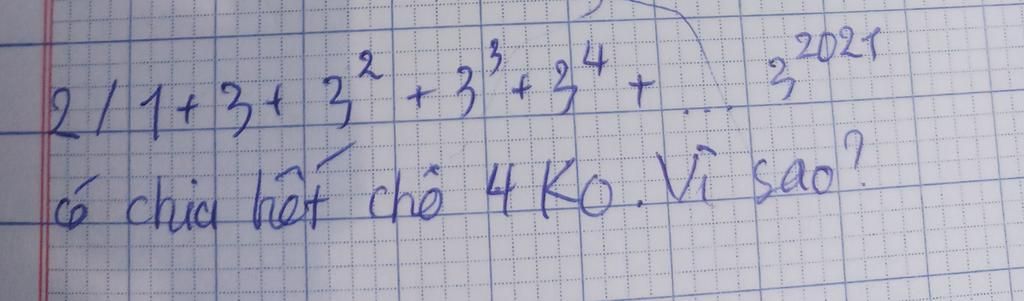 2/ 1 + 3 + 3² + 3³ + 3⁴ + ... 3²⁰²¹
có chia hết chô 4 KO. Vì sao?